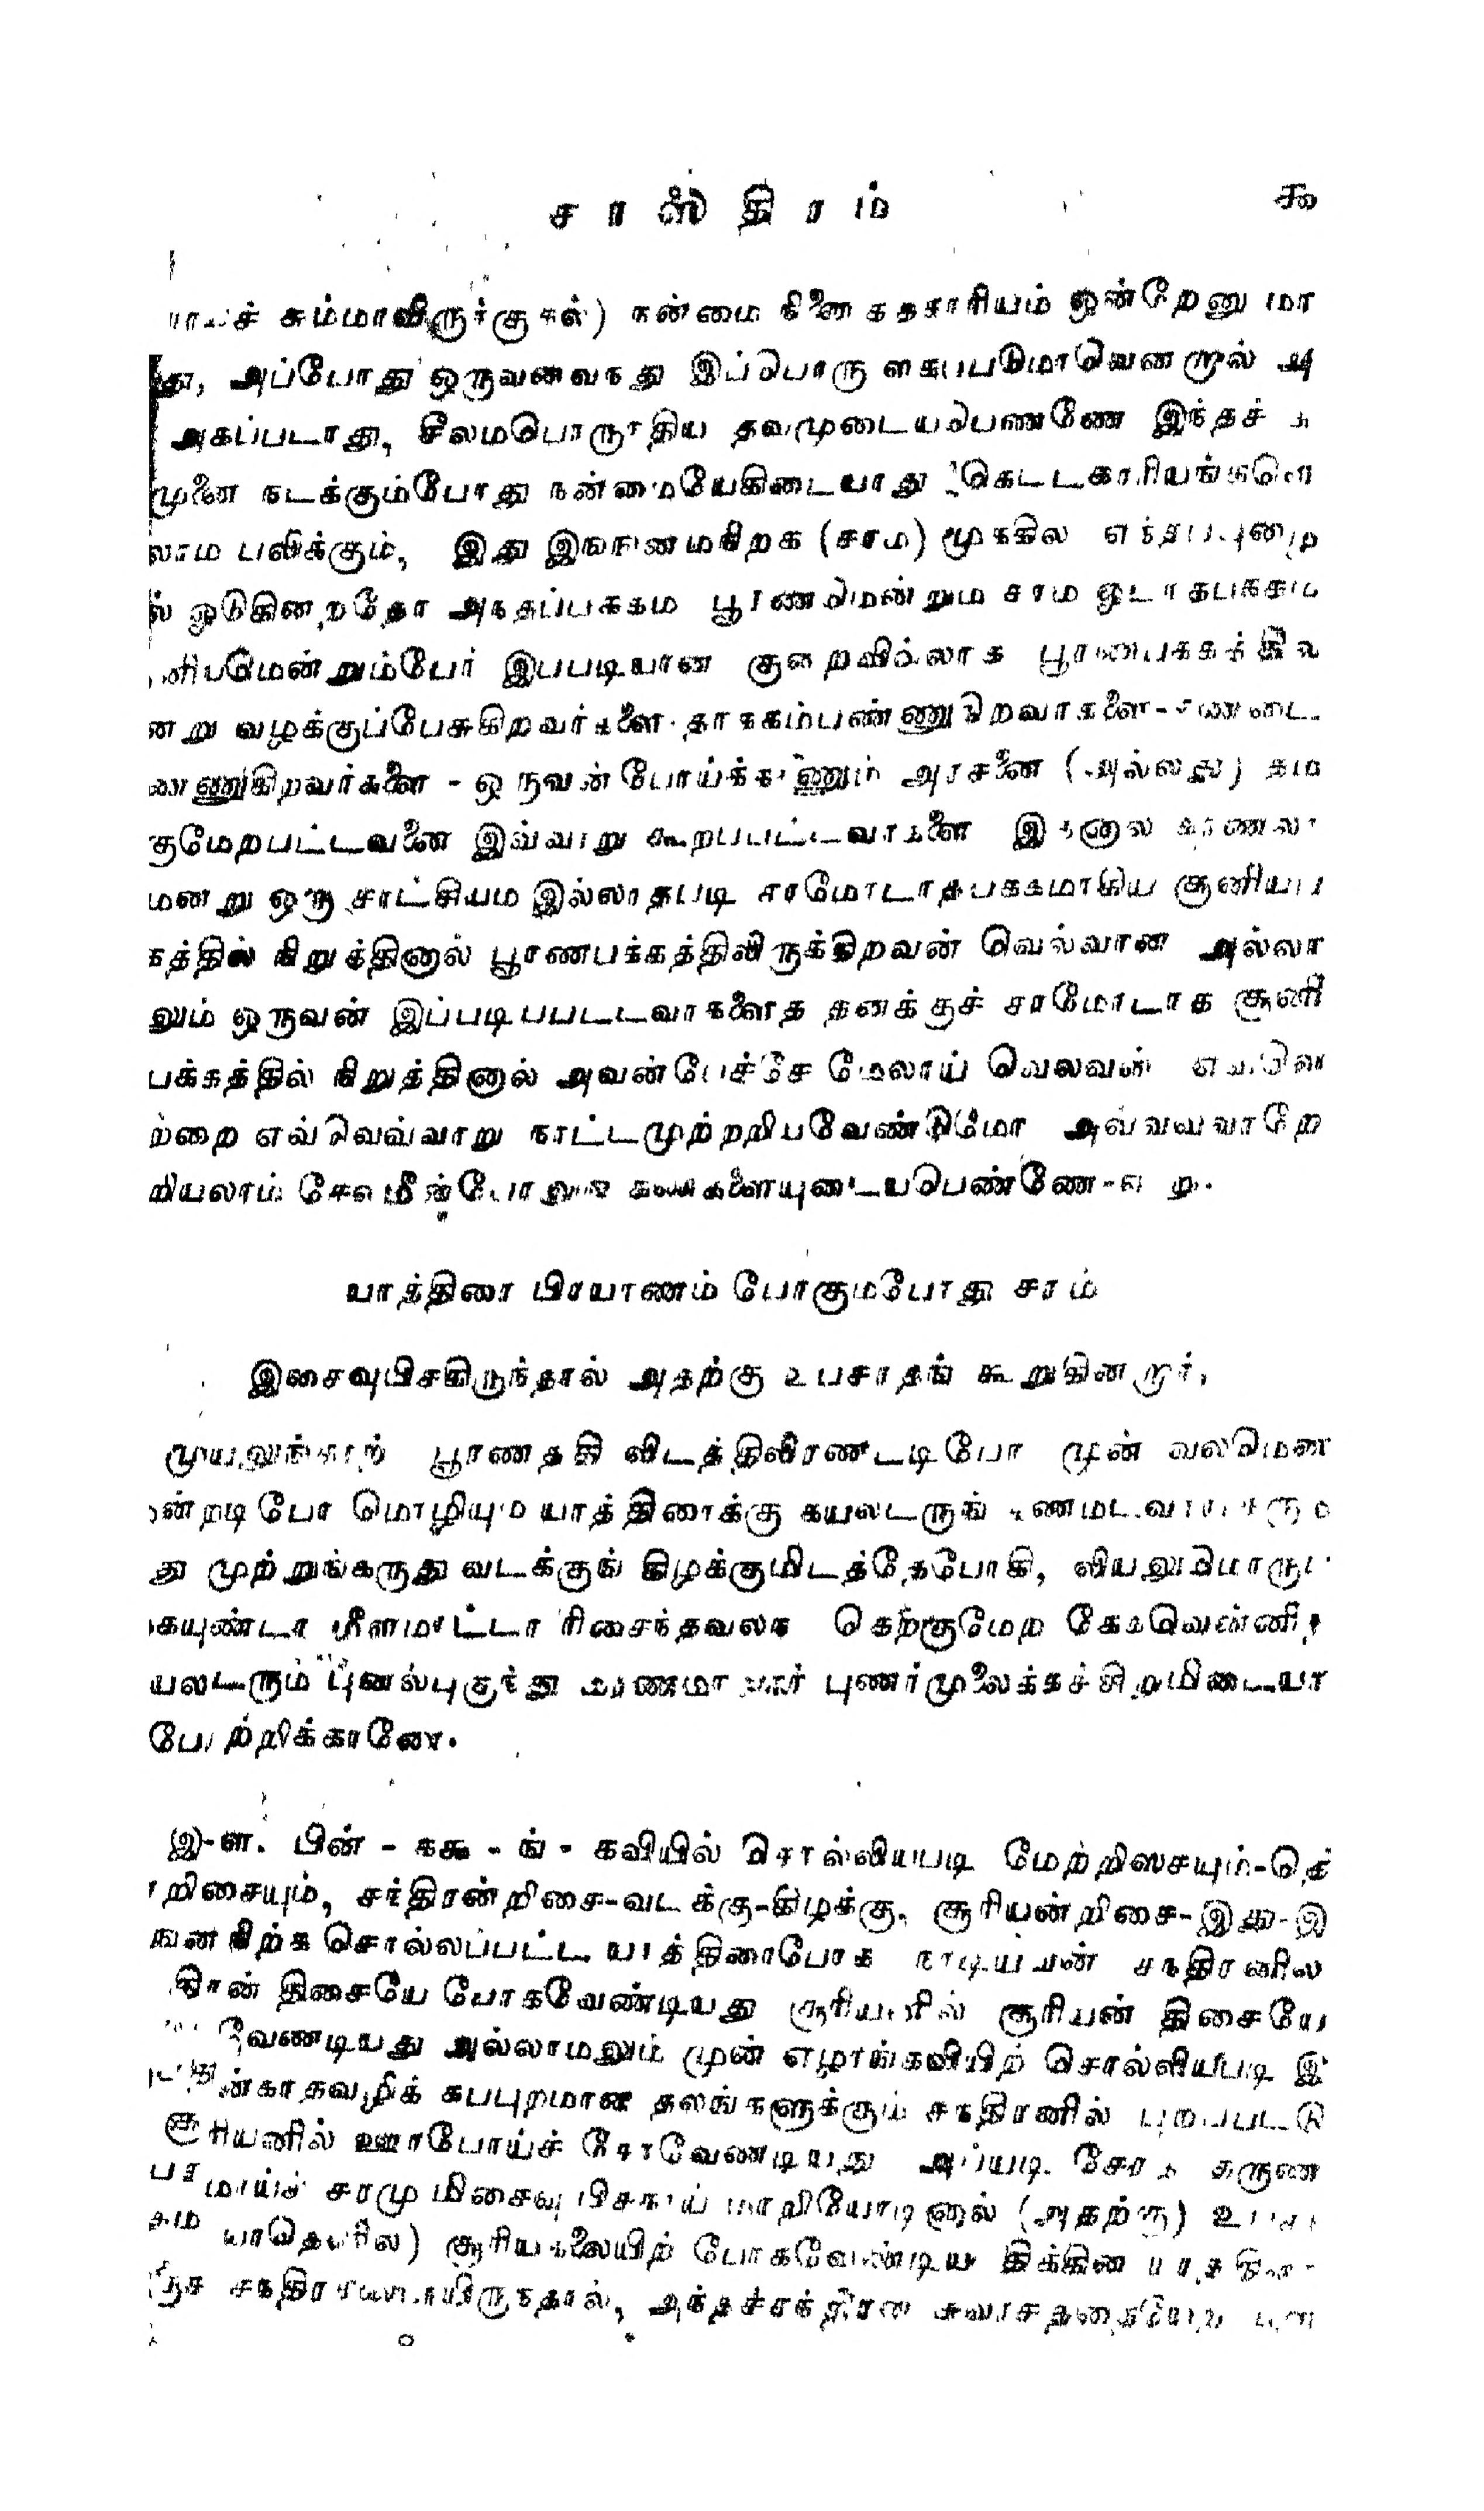 சாஸ்திரம் ௯
சும்மாவிருக்குகல்) நன்மை நினைத்தகாரியம் ஒன்றேனு மா
து, அப்போது ஒருவன்வந்து இப்பொரு
அகப்படாது, சீலம்பொருந்திய தவமுடையபெண்ணே இந்தச்
முனை நடக்கும்போது நன்மையேகிடையாது கெட்டகாரியங்களெ
லாம் பலிக்கும், இது இங்ஙனம்நிற்க (சரம்) மூக்கில்
ல் ஓடுகின்றதோ அந்தப்பக்கம் பூரணமென்றும் சரம் ஓடாதபக்கம்
னியமென்றும்பேர் இப்படியான குறைவில்லாத பூரணபக்கத்தில்
ன்று வழக்குப்பேசுகிறவர்களை-தர்க்கம்பண்ணுகிறவர்களை-சண்டை
ண்ணுகிறவர்களை - ஒருவன்போய்க்காணும் அரசனை (அல்லது) தம
குமேற்பட்டவனை இவ்வாறு கூறப்பட்டவர்களை
மன்று ஒரு சாட்சியம் இல்லாதபடி சரமோடாதபக்கமாகிய சூனியப
கத்தில் நிறுத்தினால் பூரணபக்கத்திலிருக்கிறவன் வெல்வான் அல்லா
லும் ஒருவன் இப்படிப்பட்டவர்களைத் தனக்குச் சரமோடாத சூனி
பக்கத்தில் நிறுத்தினால் அவன்பேச்சே மேலாய் வெல்வன்
ற்றை எவ்வெவ்வாறு நாட்டமுற்றறியவேண்டுமோ அவ்வவ்வாறே
றியலாம் சேல்மீன்போலுங் கண்களையுடையபெண்ணே-எ று.
யாத்திரை பிரயாணம் போகும்போது சரம்
இசைவுபிசகிருந்தால் அதற்கு உபசாதங் கூறுகின்றார்,
முயலுங்காற் பூரணத்தி லிடத்திலிரண்டடிபோ முன் வலமென
ன்றடி போ மொழியும் யாத்திரைக்கு கயலடருங்
து முற்றுங்கருது வடக்குங் கிழக்குமிடத்தேபோகி, லியலும்பொருட்
கையுண்டா மீளமாட்டா ரிசைந்தவலந் தெற்குமேற் கேகவெண்ணி,
யலடரும் புனல்புகுந்து மரணமாவார் புணர்முலைக்கச்சிறுமிடையா
போற்றிக்காணே.
இ-ள. பின் - ௧௯ - ங் - கவியில் சொல்லியபடி மேற்றிசையும்-தெ
றிசையும், சந்திரன்றிசை-வடக்கு-கிழக்கு, சூரியன்றிசை-இது-இ
ங்ஙனநிற்க சொல்லப்பட்ட யாத்திரைபோக நாடியவன் சந்திரனில்
திரன் திசையே போகவேண்டியது சூரியனில் சூரியன் திசையே
வேண்டியது அல்லாமலும் முன் எழாங்கவியிற் சொல்லியபடி இ
ன்காதவழிக் கப்புறமான தலங்களுக்கும் சந்திரனில் புறப்பட்டு
சூரியனில் ஊர்போய்ச் சேரவேண்டியது அப்படி சேரத் தருண
மாய்ச் சரமு மிசைவு பிசகாய் மாறியோடினால் (அதற்கு)
யாதெனில்) சூரியகலையிற் போகவேண்டிய திக்கின்
சந்திர அந்தச்சந்திரன்